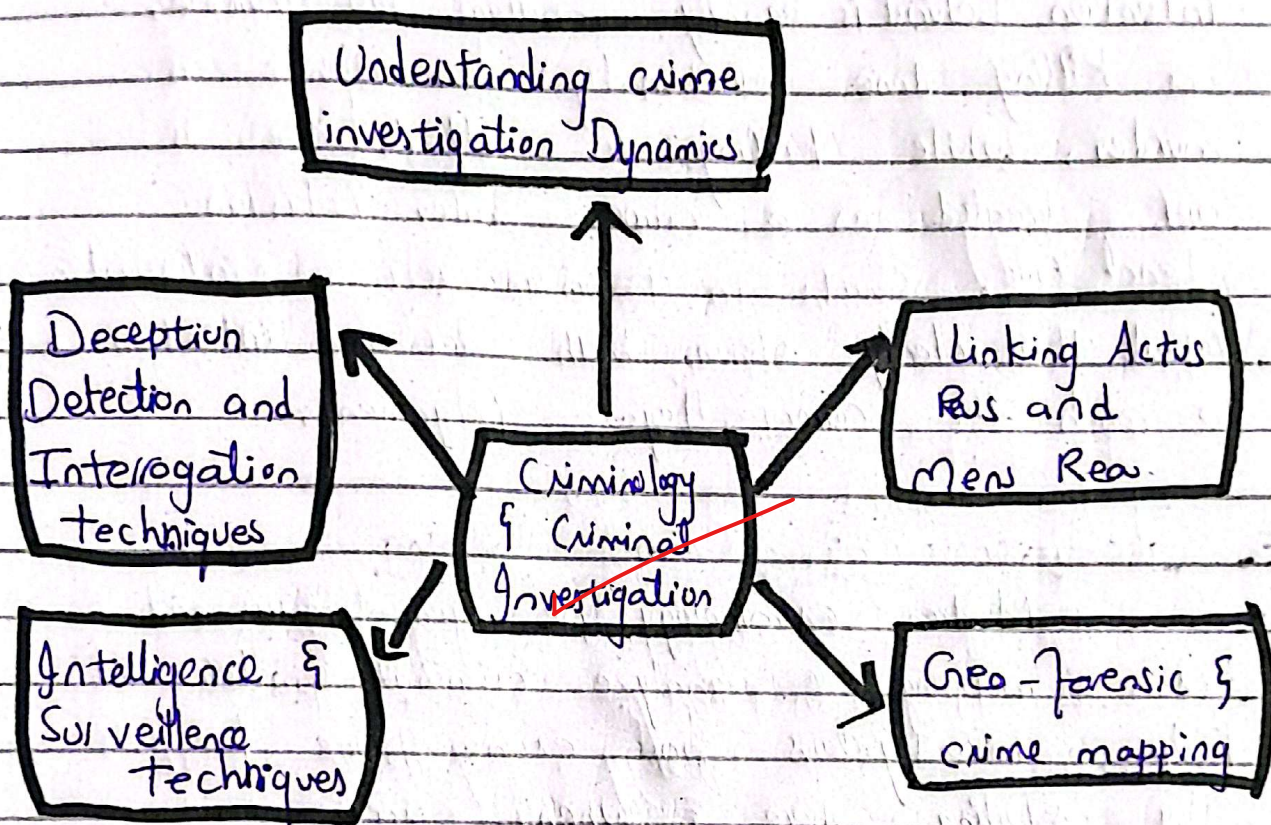 Understanding crime
investigation Dynamics
Deception
Detection and
Interrogation
techniques
Linking Actus
Reus and
Mens Rea
Criminology
& Criminal
Investigation
Intelligence &
Surveillence
techniques
Geo-Forensic &
crime mapping